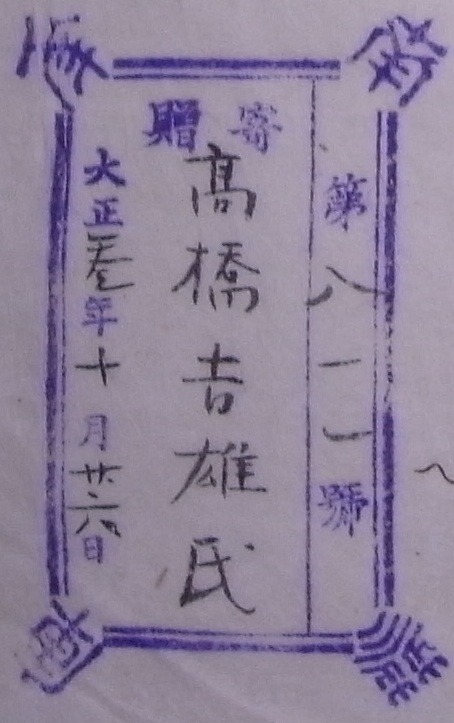 第八一一號
寄贈
髙橋吉雄氏
大正叁年十月廿六日